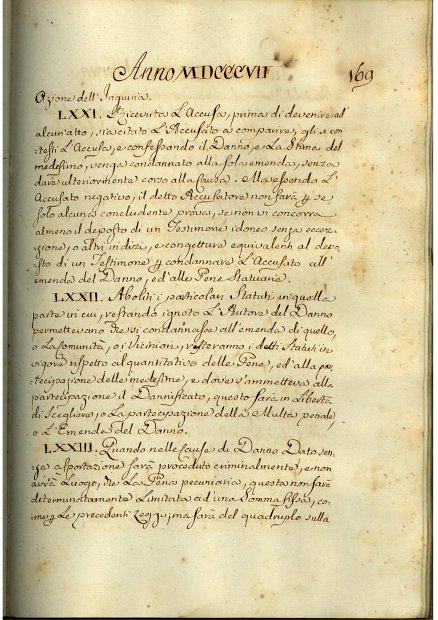 Anno MDCCCVII 169
Azione dell' Ingiuria.
LXXI. Ricevuta l'Accusa, prima di devenire ad
alcun'atto, sia citato l'Accusato a comparire, gli si con-
testi l'Accusa, e confessando il Danno, e la Stima del
medesimo, venga condannato alla sola emenda, senza
darsi ulteriormente corso alla Causa. Ma essendo l'
Accusato negativo, il detto Accusatore non farà per se
solo alcuna concludente prova, se non vi concorra
almeno il deposto di un Testimone idoneo senza ecce-
zione, o altri indizi, e congetture equivalenti al depo-
sto di un Testimone per condannare l'Accusato all'
emenda del Danno, ed alle Pene Statuarie.
LXXII. Aboliti i particolari Statuti in quella
parte in cui, restando ignoto l'Autore del Danno
permettevano di condannarsi all'emenda di quello,
o la Comunità, o i Vicinióri, resteranno i detti Statuti in
vigore rispetto al quantitativo delle Pene, ed alla par-
tecipazione delle medesime, e dove s'ammetteva alla
partecipazione il Dannificato, questo sarà in Libertà
di Scegliere, o la partecipazione della Multa penale,
o l'Emenda del Danno.
LXXIII. Quando nelle Cause di Danno Dato sen-
za asportazione sarà proceduto criminalmente, e non
avrà luogo, che la Pena pecuniaria, questa non sarà
determinatamente limitata ad una Somma fissa, co-
me per le precedenti Leggi, ma sarà del quadruplo sulla